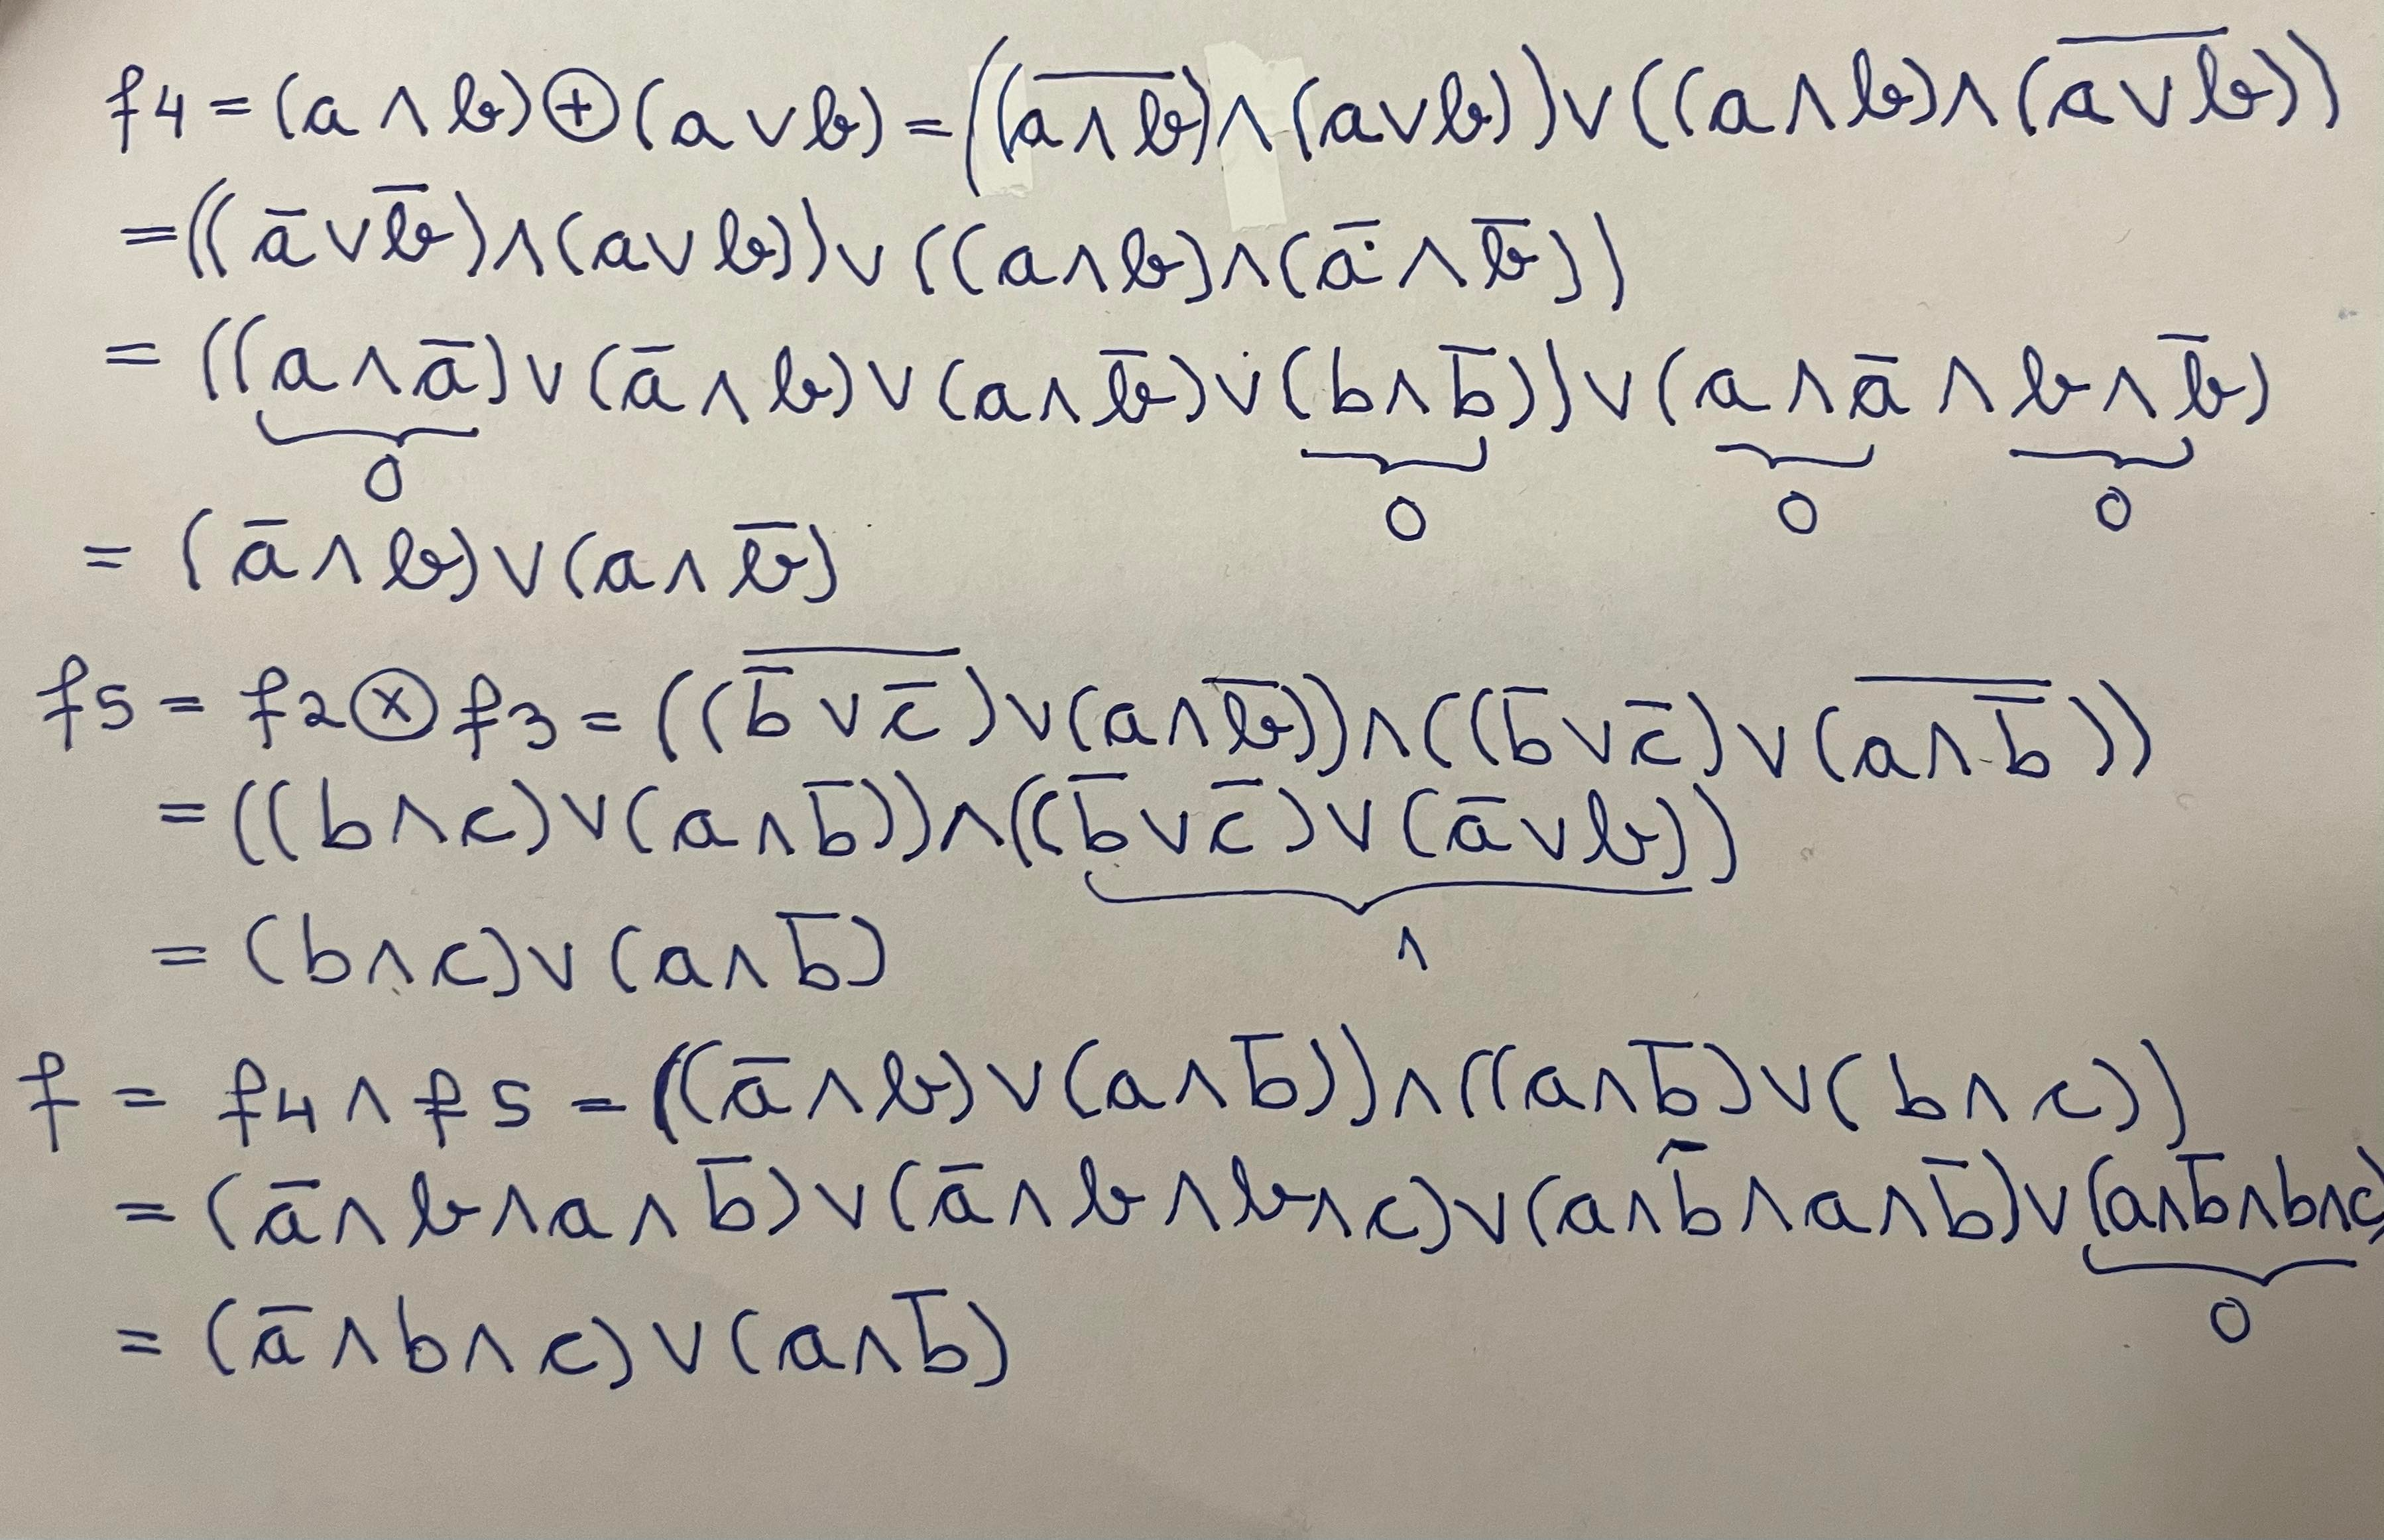 f4 = (a ∧ b) ⊕ (a ∨ b) = ((a̅ ̅∧̅ ̅b̅) ∧ (a ∨ b)) ∨ ((a ∧ b) ∧ (a̅ ̅∨̅ ̅b̅))
= ((a̅ ∨ b̅) ∧ (a ∨ b)) ∨ ((a ∧ b) ∧ (a̅ ∧ b̅))
= ((a ∧ a̅) ∨ (a̅ ∧ b) ∨ (a ∧ b̅) ∨ (b ∧ b̅)) ∨ (a ∧ a̅ ∧ b ∧ b̅)
0 0 0 0
= (a̅ ∧ b) ∨ (a ∧ b̅)
f5 = f2 ⊗ f3 = ((b̿ ̅∨̅ ̅c̿) ∨ (a ∧ b̅)) ∧ ((b̅ ∨ c̅) ∨ (a̅ ̅∧̅ ̅b̿))
= ((b ∧ c) ∨ (a ∧ b̅)) ∧ ((b̅ ∨ c̅) ∨ (a̅ ∨ b))
1
= (b ∧ c) ∨ (a ∧ b̅)
f = f4 ∧ f5 = ((a̅ ∧ b) ∨ (a ∧ b̅)) ∧ ((a ∧ b̅) ∨ (b ∧ c))
= (a̅ ∧ b ∧ a ∧ b̅) ∨ (a̅ ∧ b ∧ b ∧ c) ∨ (a ∧ b̅ ∧ a ∧ b̅) ∨ (a ∧ b̅ ∧ b ∧ c)
0
= (a̅ ∧ b ∧ c) ∨ (a ∧ b̅)